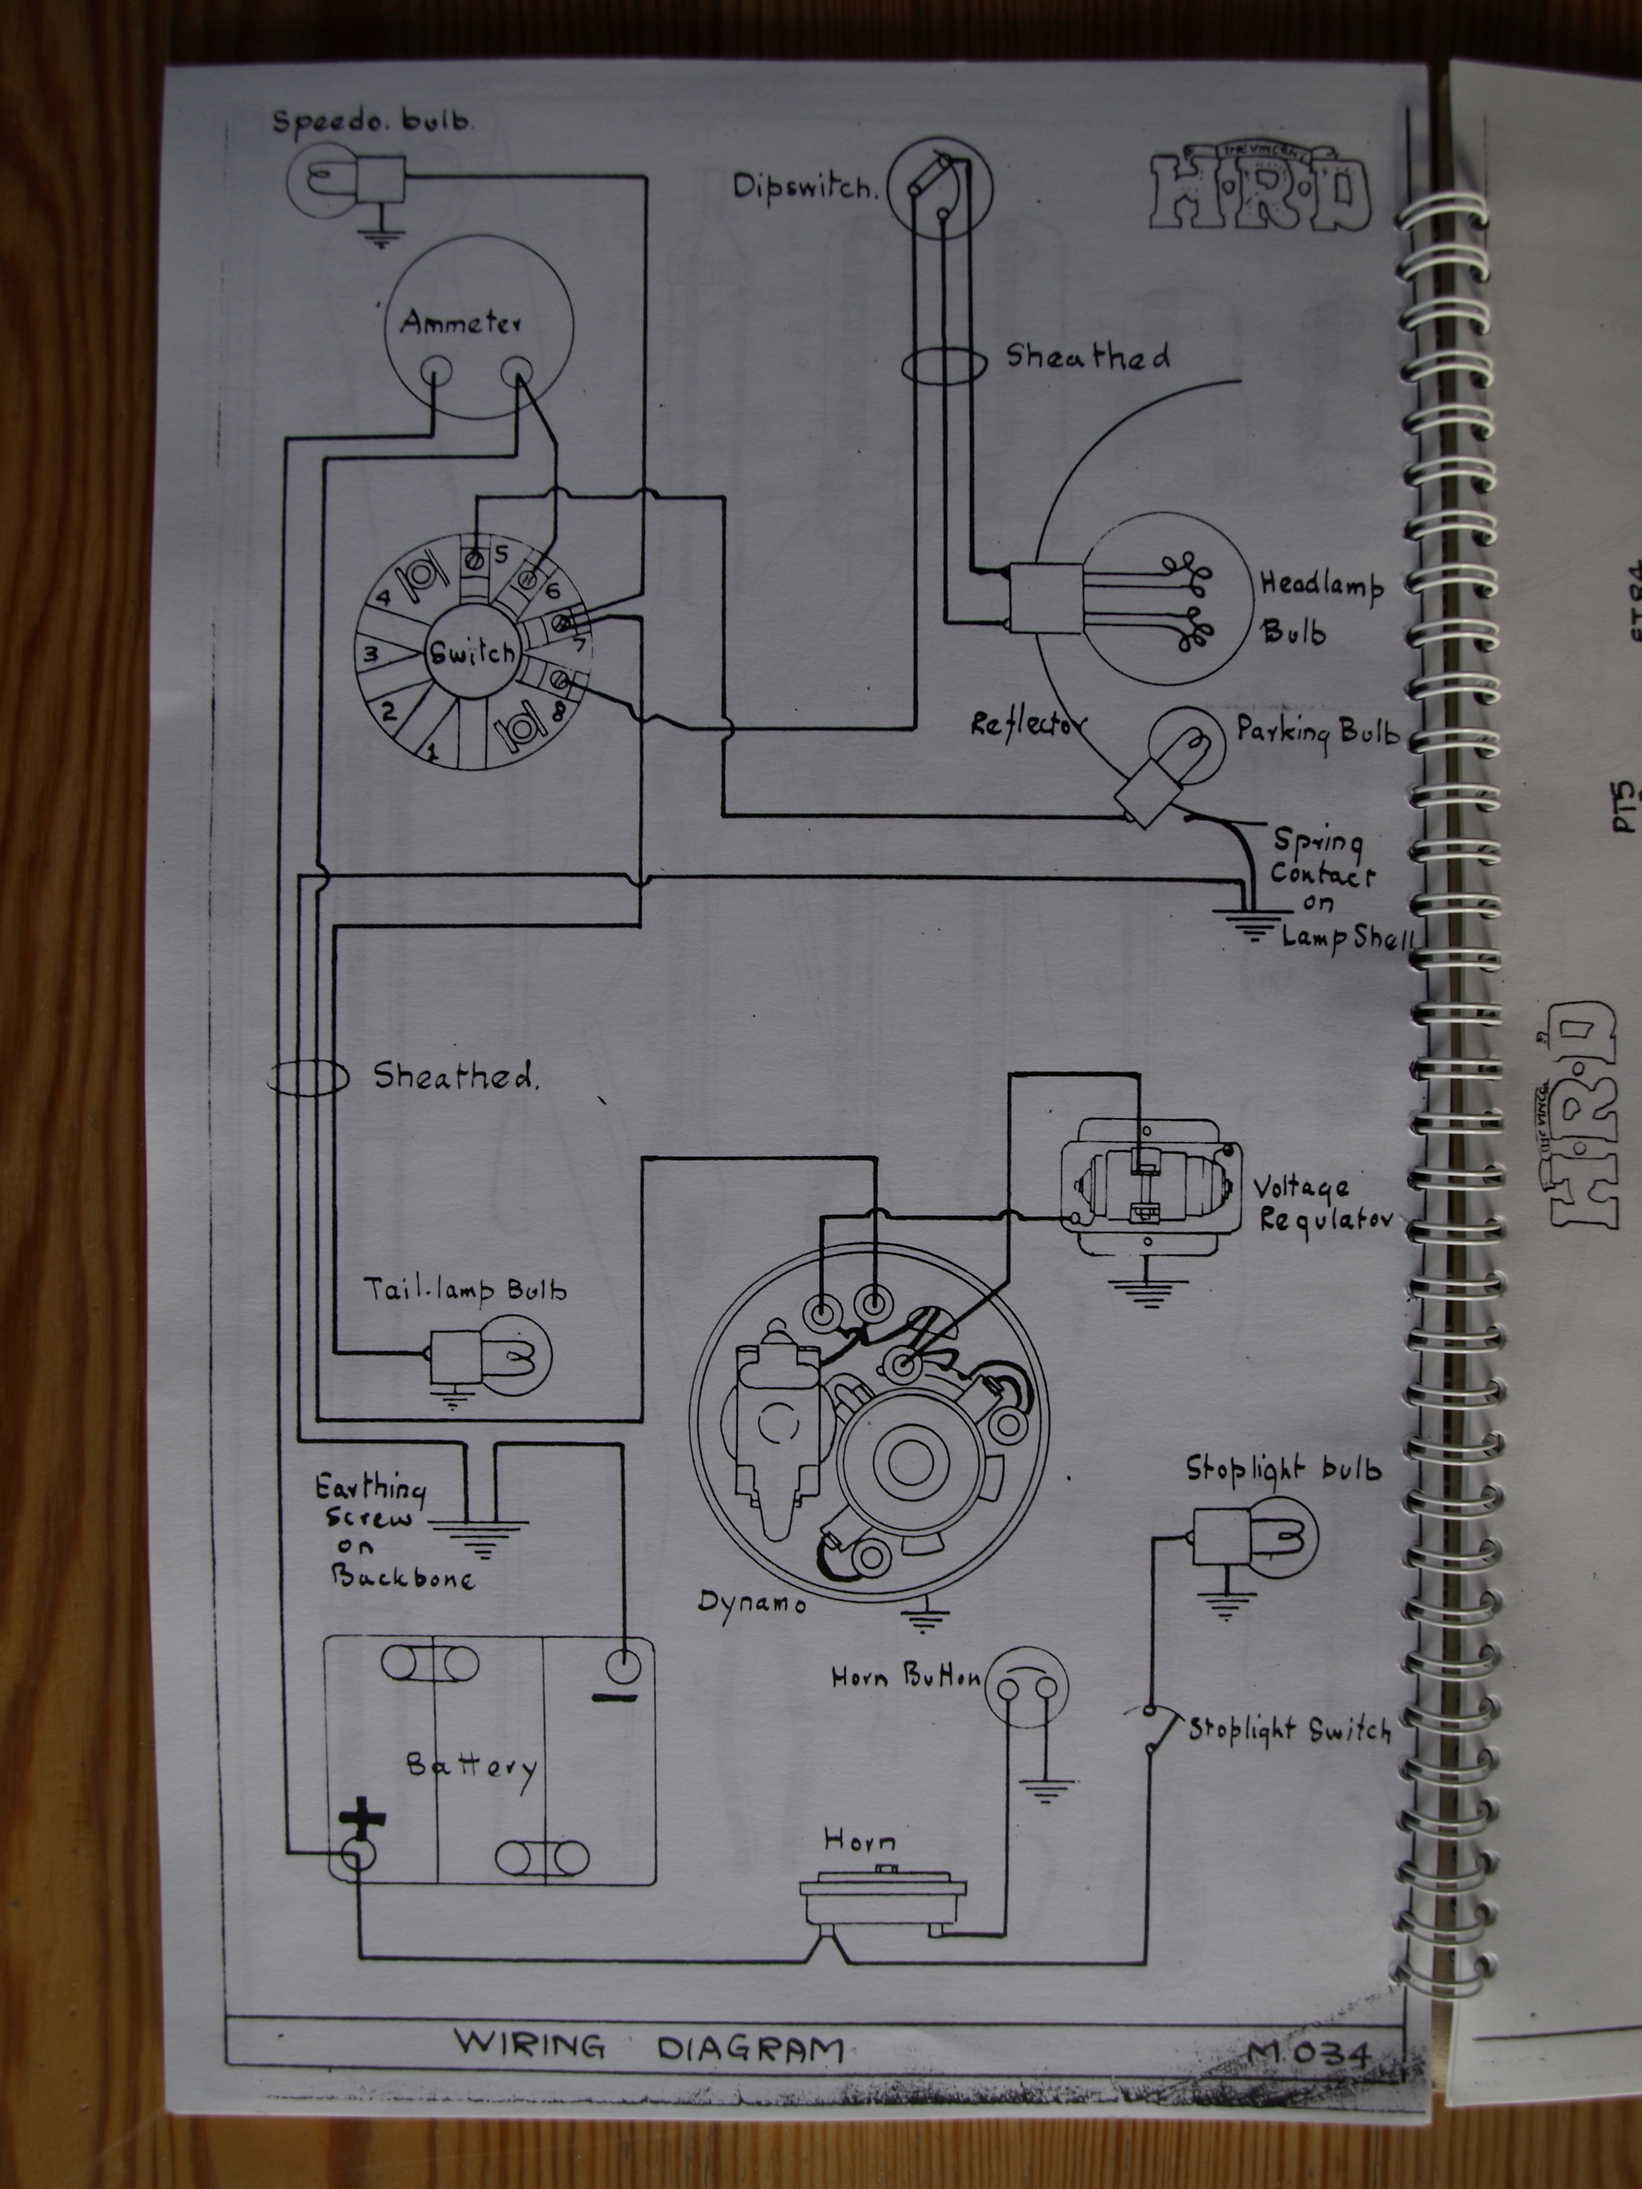 Speedo. bulb.
Dipswitch.
THE VINCENT
H·R·D
Ammeter
Sheathed
5
6
4
7
3
Switch
8
2
1
Headlamp
Bulb
Reflector
Parking Bulb
Spring
Contact
on
Lamp Shell
Sheathed.
Voltage
Regulator
Tail-lamp Bulb
Earthing
Screw
on
Backbone
Stoplight bulb
Dynamo
Horn Button
Stoplight Switch
Battery
+
−
Horn
WIRING DIAGRAM
M.034
PT5
H·R·D